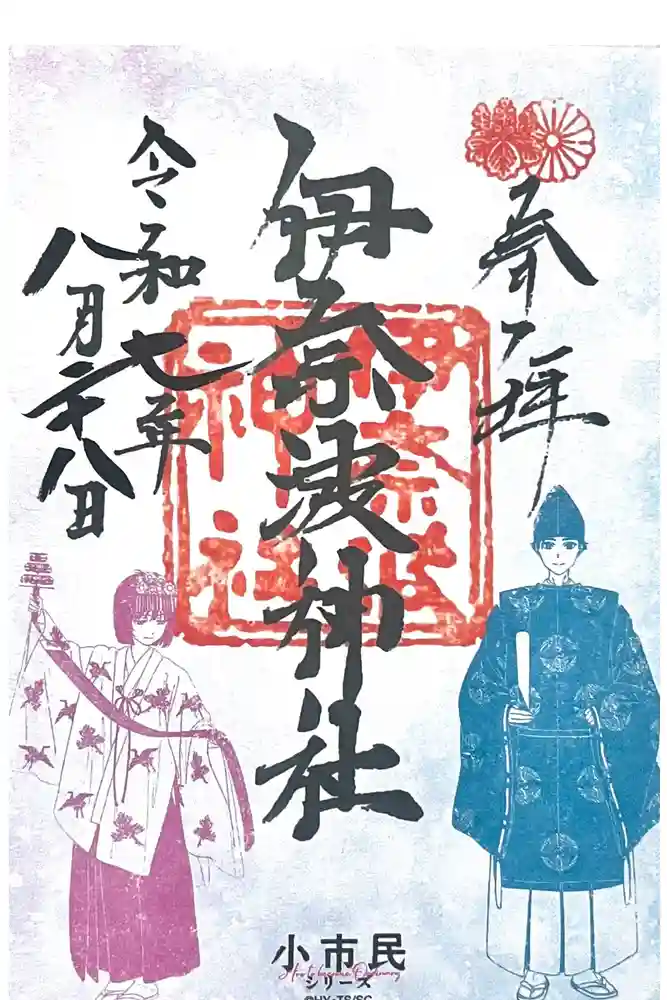 奉拝
伊奈波神社
伊奈波
神社
令和七年
八月二十八日
小市民
How to become Ordinary
シリーズ
©HY・TS/SC